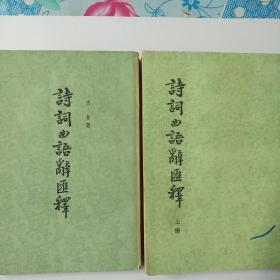 詩詞曲語辭匯釋
張相著
詩詞曲語辭匯釋
上冊